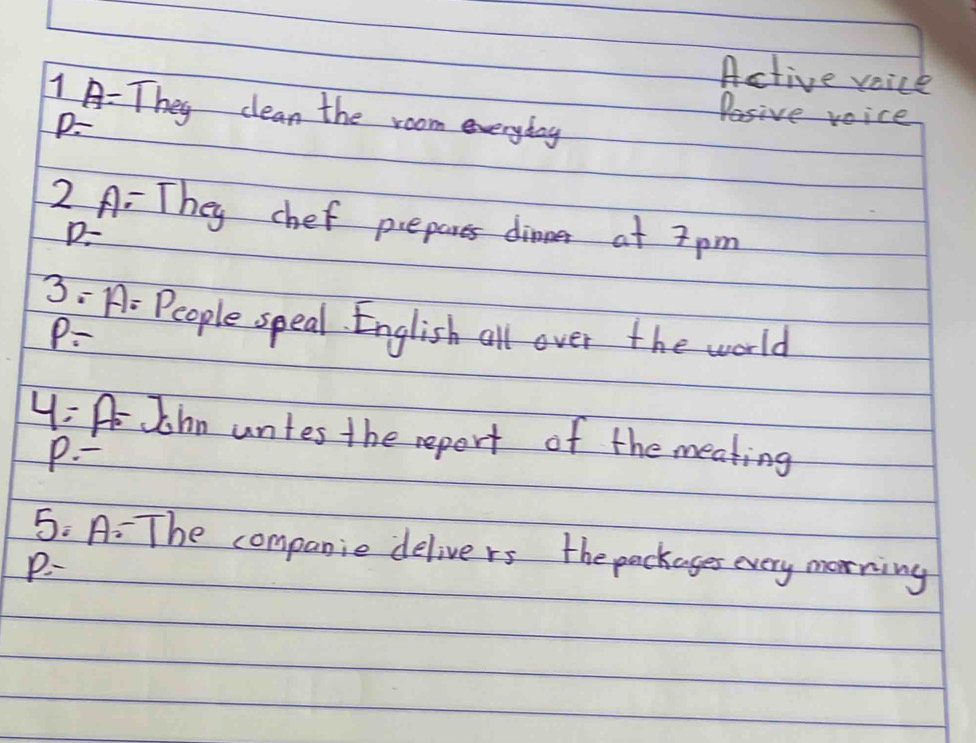 Active voice
Pasive voice
1 A= They clean the room everyday
P.-
2 A.- They chef prepares dinner at 7pm
P.-
3.- A.- People speal English all over the world
P.-
4.- A.- John untes the report of the meating
P.-
5. A.- The companie delivers the packages every morrning
P.-